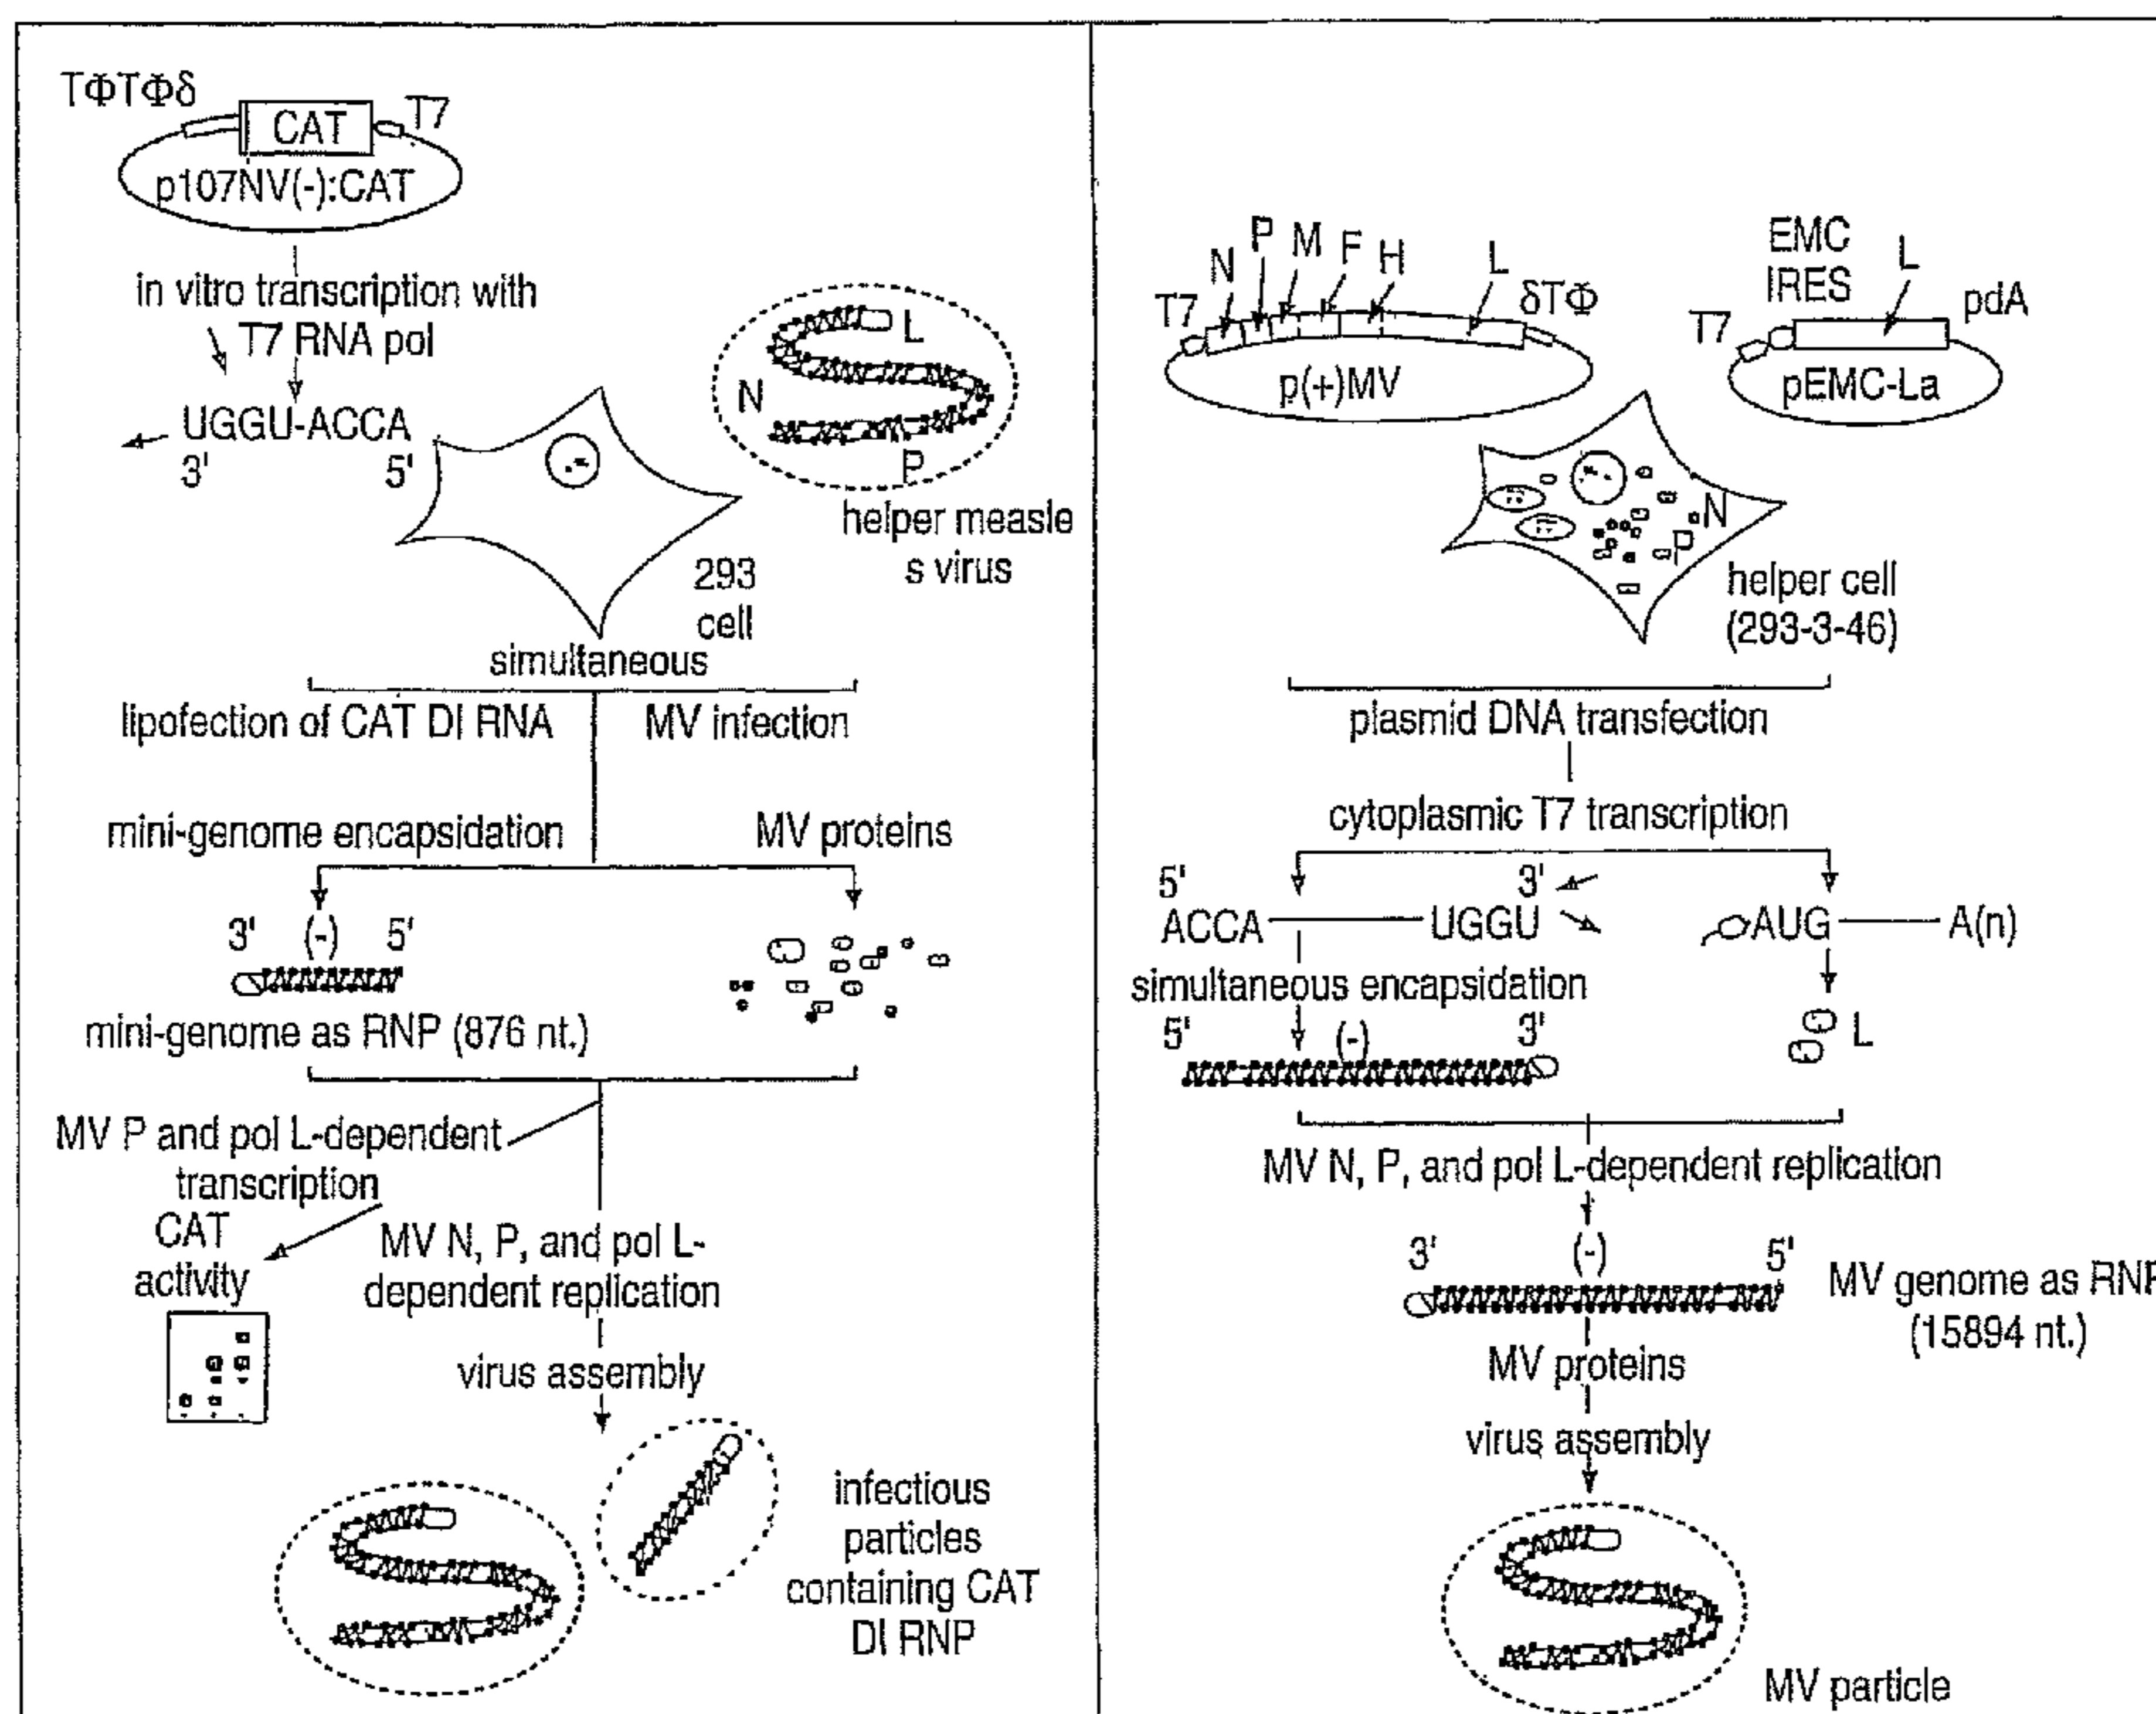 TΦTΦδ
CAT
T7
p107NV(-):CAT
in vitro transcription with
T7 RNA pol
UGGU-ACCA
3' 5'
L
N
P
helper measle
s virus
293
cell
simultaneous
lipofection of CAT DI RNA
MV infection
mini-genome encapsidation
MV proteins
3' (-) 5'
mini-genome as RNP (876 nt.)
MV P and pol L-dependent
transcription
CAT
activity
MV N, P, and pol L-
dependent replication
virus assembly
infectious
particles
containing CAT
DI RNP
T7
N
P
M
F
H
L
δTΦ
p(+)MV
EMC
IRES
L
T7
pdA
pEMC-La
N
P
helper cell
(293-3-46)
plasmid DNA transfection
cytoplasmic T7 transcription
5' 3'
ACCA UGGU
AUG A(n)
simultaneous encapsidation
5' (-) 3'
L
MV N, P, and pol L-dependent replication
3' (-) 5'
MV genome as RNP
(15894 nt.)
MV proteins
virus assembly
MV particle